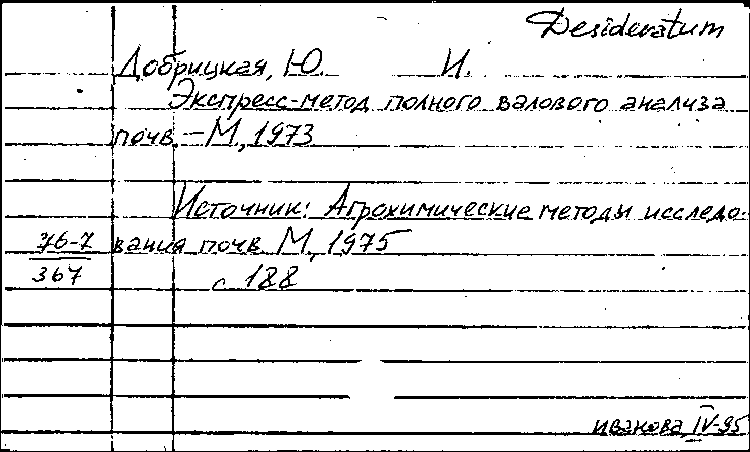 Desideratum
Добрицкая, Ю. И.
Экспресс-метод полного валового анализа
почв. – М., 1973
Источник: Агрохимические методы исследо-
76-7 вания почв. М., 1975
367 с 188
иванова IV-95